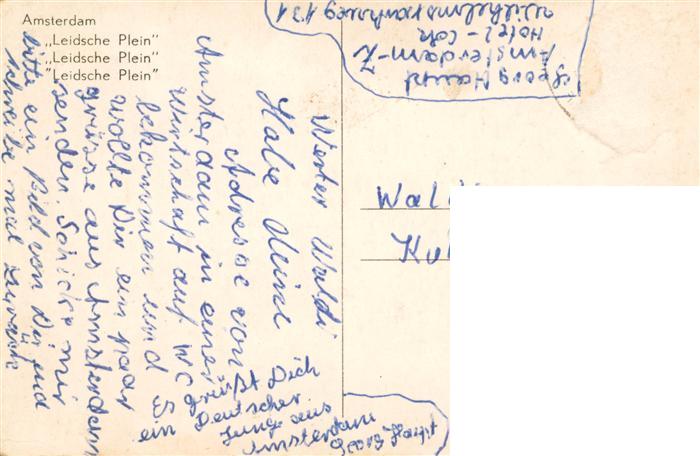 Amsterdam
„Leidsche Plein”
„Leidsche Plein”
"Leidsche Plein"
Georg Haupt
Amsterdam-Z
Hotel - Cok
131
Werter Waldi
Habe Deine
Adresse von
Amsterdam in einer
wirtschaft auf WC
bekommen und
wollte Dir ein paar
grüsse aus Amsterdam
senden. Schicke mir
bitte ein Bild von Dir und
schreibe mal zurück
Es grüßt Dich
ein Deutscher
Junge aus
Amsterdam
Wald